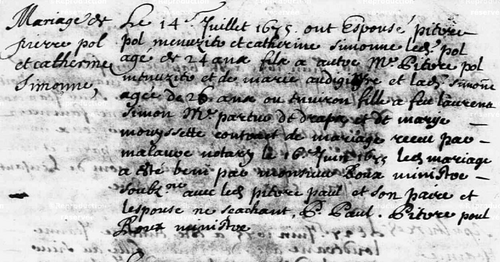 Mariage de
pierre pol
et catherine
Simonne,
Le 14e Juillet 1675. ont Espousé pierre
pol menuzito et catherine simonne led pol
age de 24 ans fils a autre Me Pitore pol
menuzito et de marie audigi et lad simone
agée de 26 ans ou environ fille a feu laurens
Simon Me de drapz et de marye
mouyssette contract de mariage receu par
malauze notary le 16e Juin 1675 led mariage
a este beni par monsieur Roux ministre
soubzne avec led pitore paul et son paire et
lespouse ne scachant, P. Paul. Pitore poul
Roux ministre